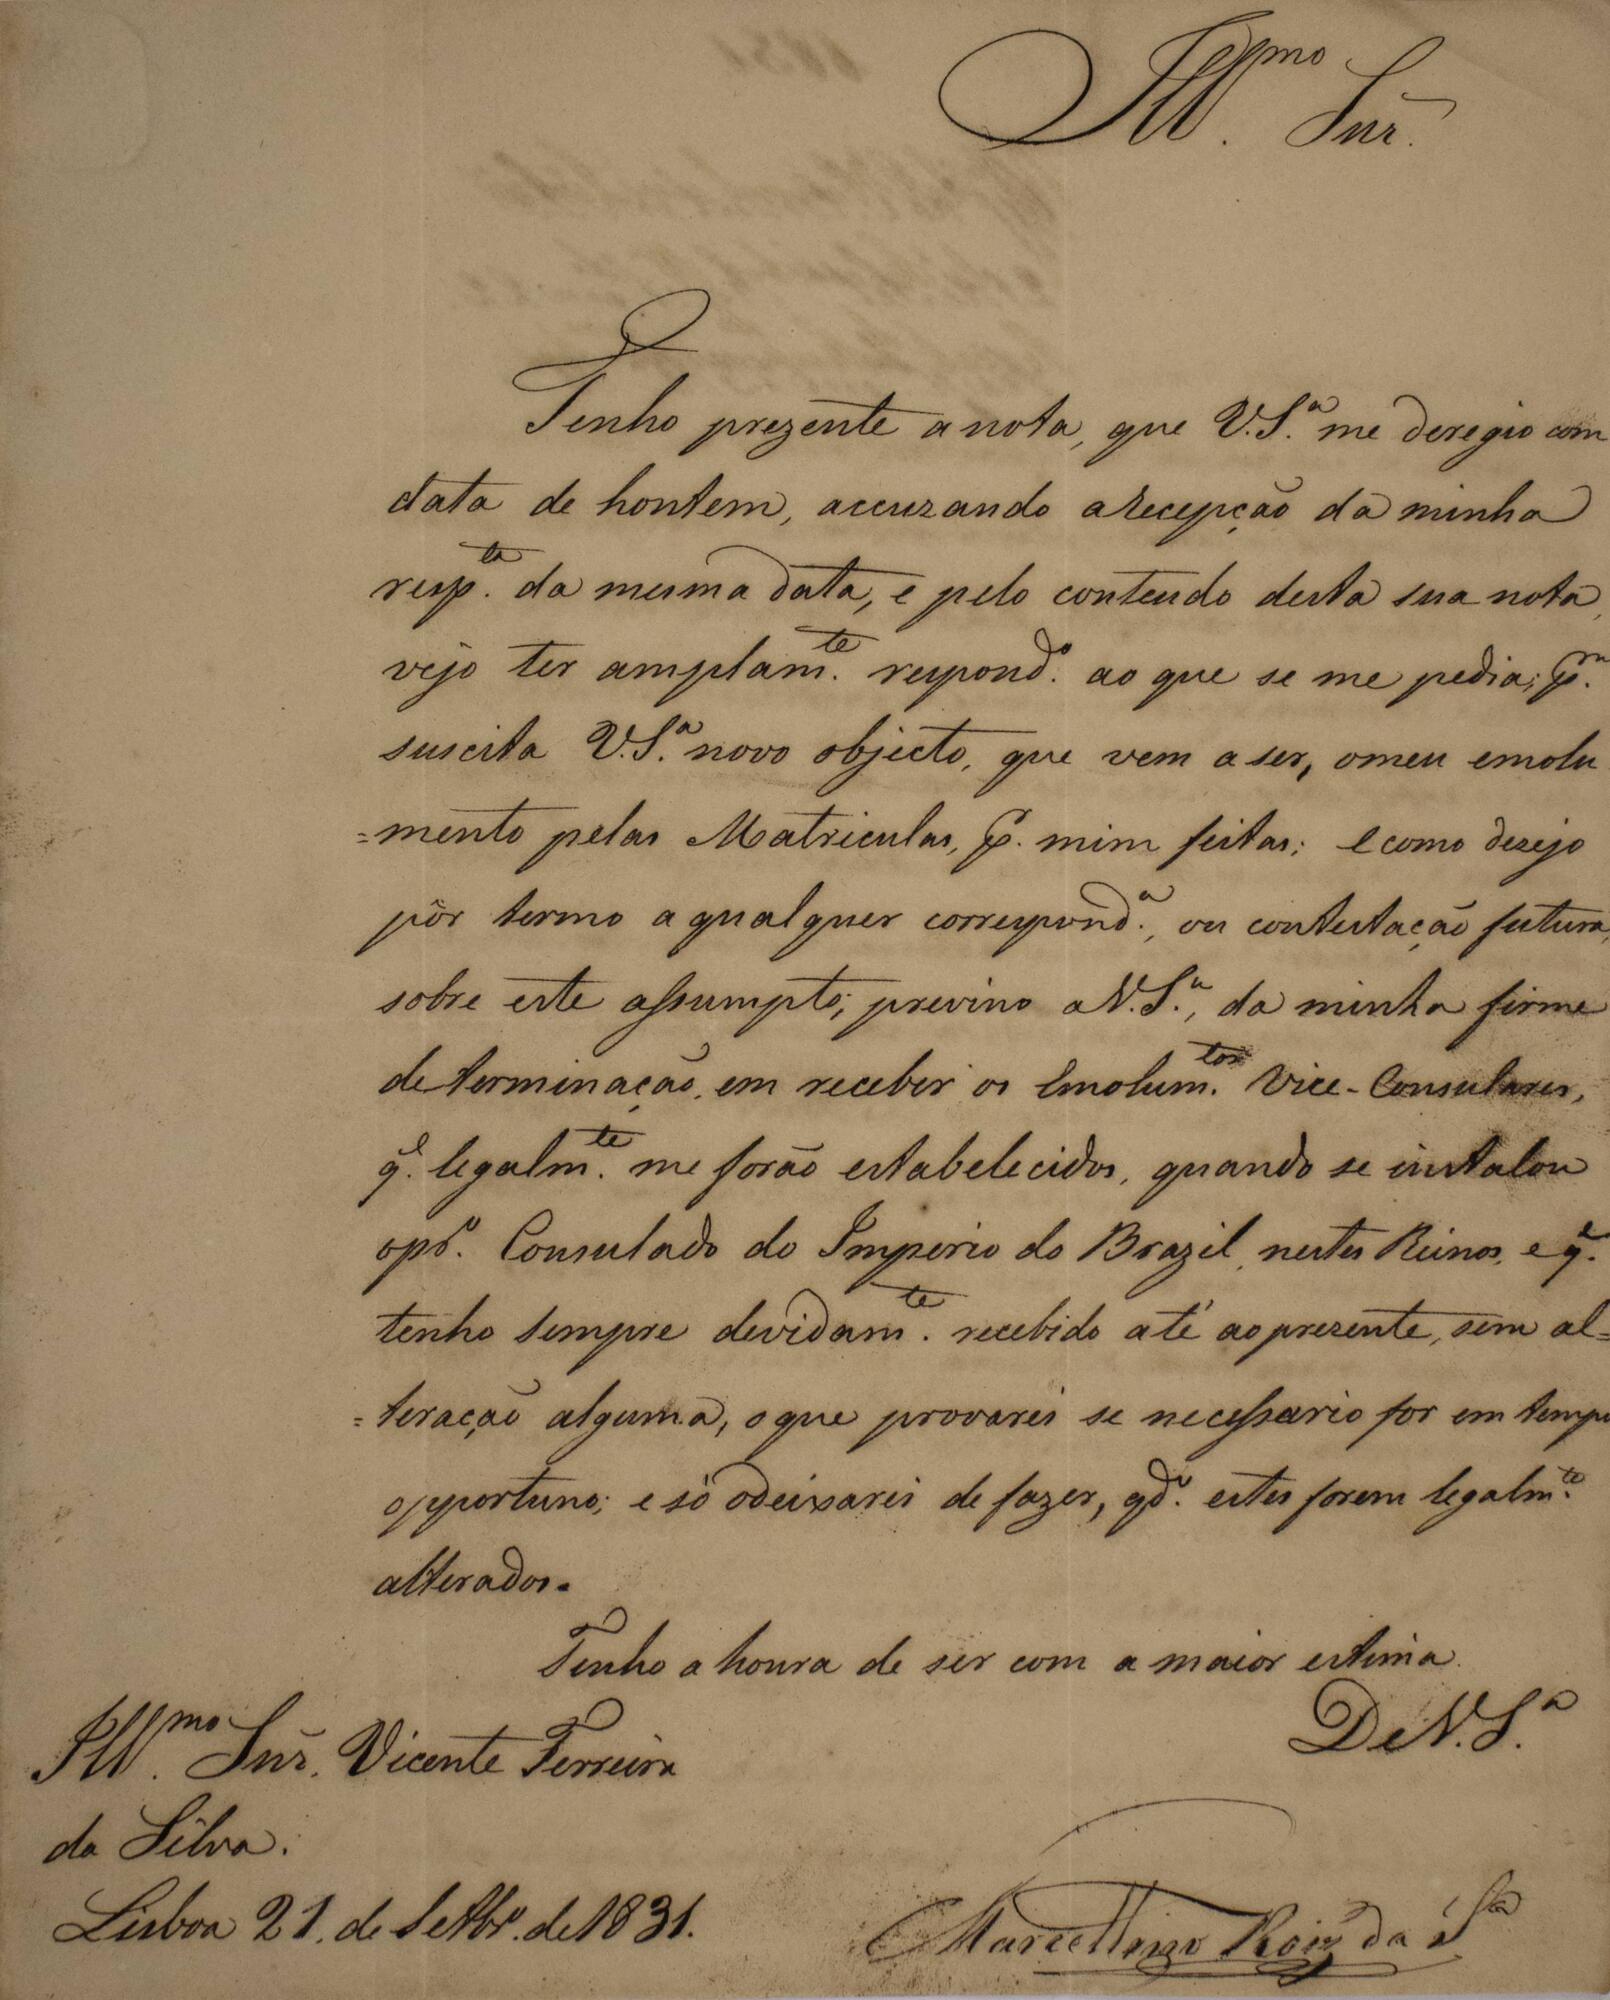 Ill.mo Snr.
Tenho prezente a nota, que V.S.ª me deregio com
data de hontem, accuzando a recepção da minha
resp.ta da mesma data, e pelo conteudo desta sua nota,
vejo ter amplam.te respond.º ao que se me pedia; p.m
suscita V.S.ª novo objecto, que vem a ser, o meu emolu
=mento pelas Matriculas, p.r mim feitas; e como dezejo
pôr termo a qualquer correspond.ª, ou contestação futura,
sobre este assumpto; previno a V.S.ª, da minha firme
determinação, em receber os Emolum.tos Vice-Consulares,
q.e legalm.te me forão estabelecidos, quando se installou
o p.º Consulado do Imperio do Brazil, nestes Reinos, e q.e
tenho sempre devidam.te recebido até ao prezente, sem al=
=teração alguma, o que provarei se necessario for em tempo
opportuno; e só o deixarei de fazer, q.do estes forem legalm.te
alterados.
Tenho a honra de ser com a maior estima
De V.S.ª
Ill.mo Snr. Vicente Ferreira
da Silva.
Lisboa 21. de Setbr.º de 1831.
Marcellino Roiz da S.ª